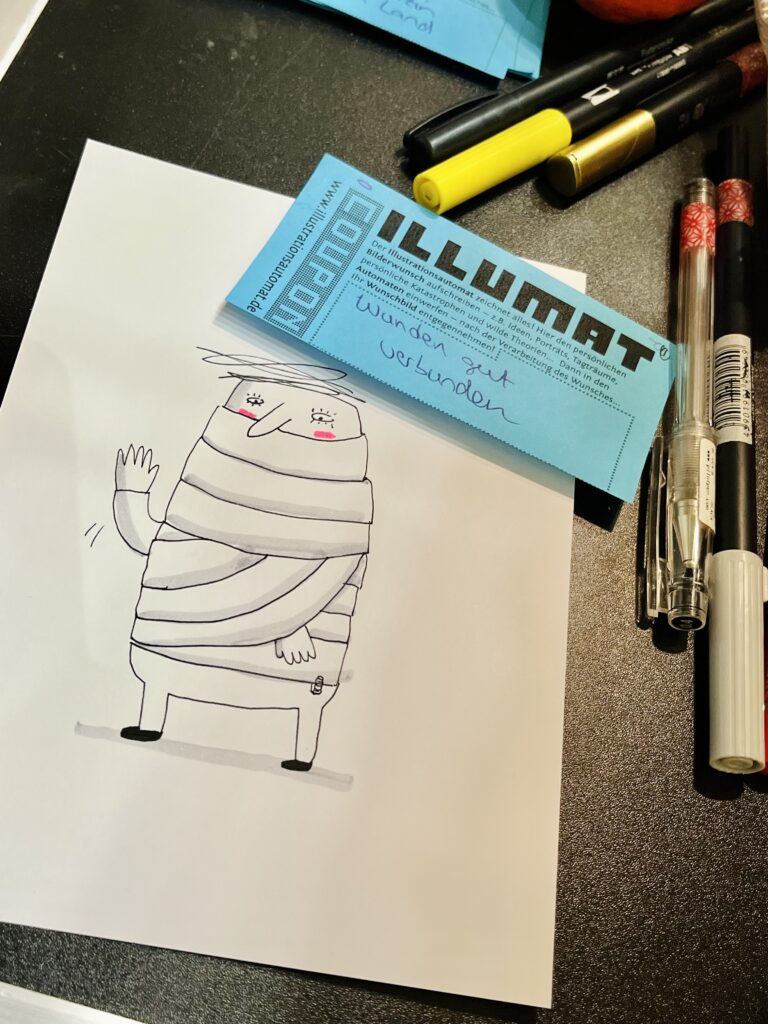 Land
www.illustrationsautomat.de
COUPON
ILLUMAT
Der Illustrationsautomat zeichnet alles! Hier den persönlichen
Bilderwunsch aufschreiben – z.B. Ideen, Porträts, Tagträume,
persönliche Katastrophen und wilde Theorien... Dann in den
Automaten einwerfen – nach der Verarbeitung des Wunsches...
Ihr Wunschbild entgegennehmen!
Wunden gut
verbunden